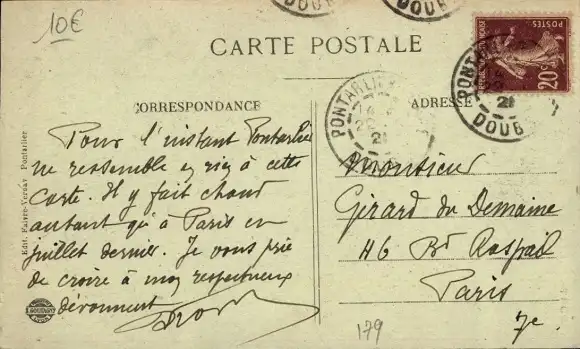 10€
CARTE POSTALE
CORRESPONDANCE
ADRESSE
PONTARLIER
21
DOUBS
PONTARLIER
21
DOUBS
POSTES
20c
Pour l'instant Pontarlier
ne ressemble en rien à cette
carte. Il y fait chaud
autant qu'à Paris en
juillet dernier. Je vous prie
de croire à mon respectueux
dévouement
Monsieur
Gérard du Demaine
46 Bd Raspail
Paris
7e.
179
Edit. Faivre-Verdav Pontarlier